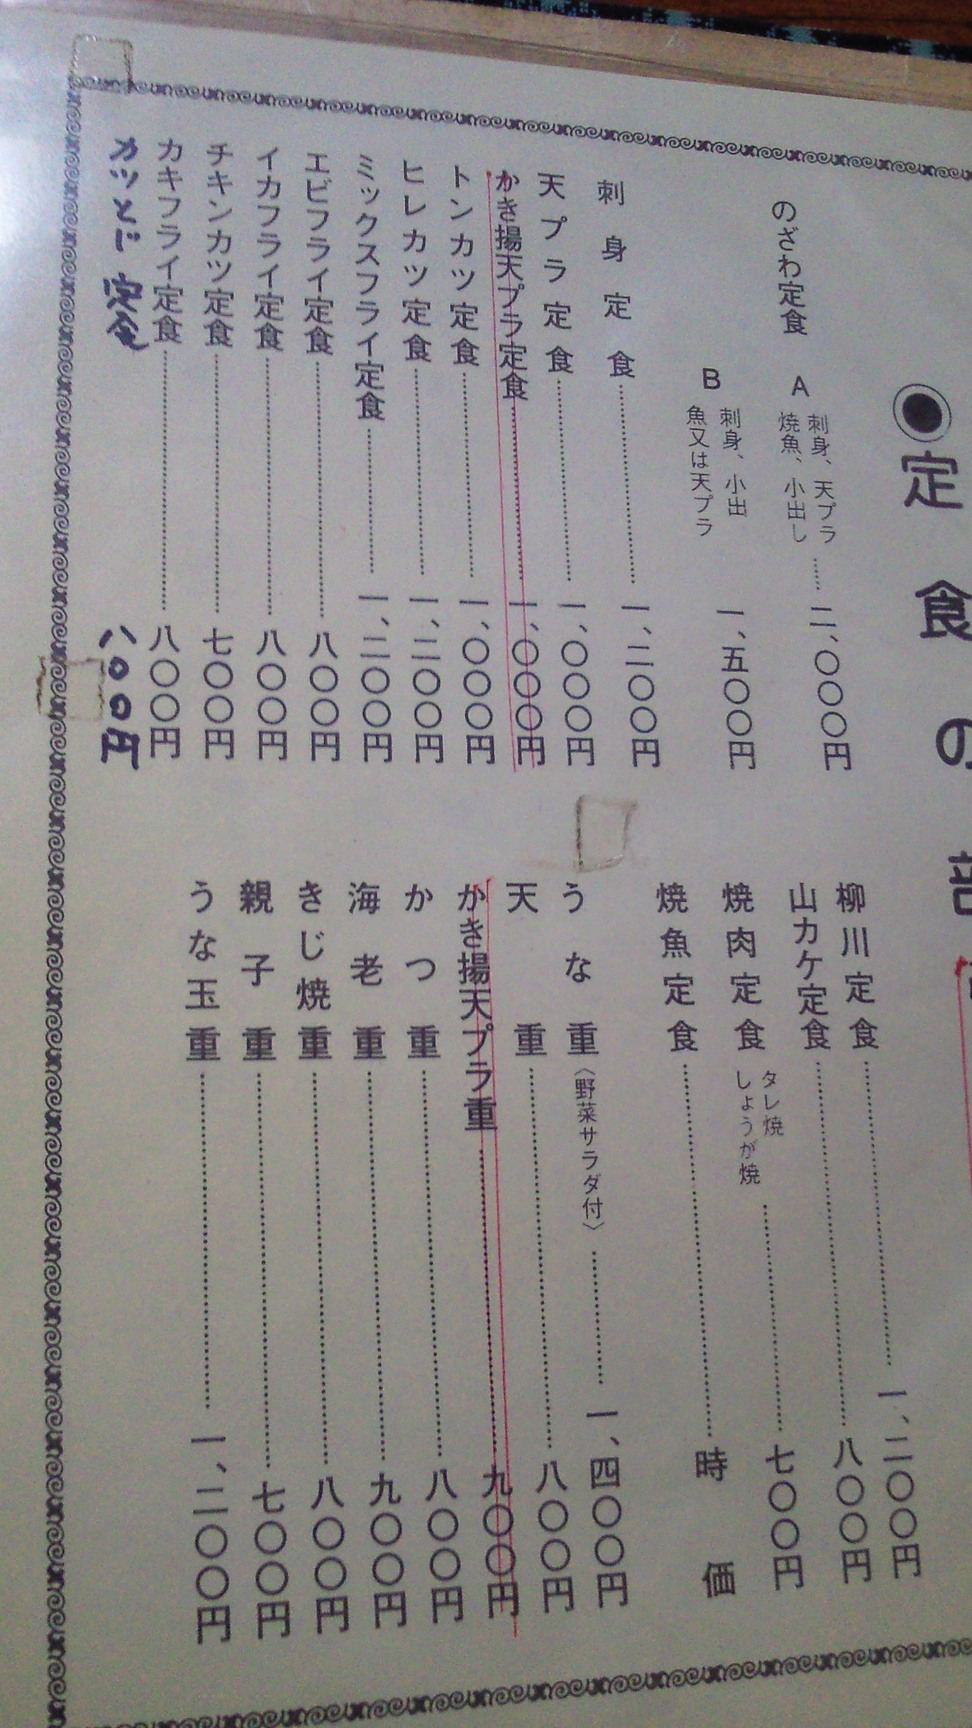 定食の部
のざわ定食
A 刺身、天プラ
焼魚、小出し……二、〇〇〇円
B 刺身、小出
魚又は天プラ 一、五〇〇円
刺身定食……一、二〇〇円
天プラ定食……一、〇〇〇円
かき揚天プラ定食……一、〇〇〇円
トンカツ定食……一、〇〇〇円
ヒレカツ定食……一、二〇〇円
ミックスフライ定食……一、二〇〇円
エビフライ定食……八〇〇円
イカフライ定食……八〇〇円
チキンカツ定食……七〇〇円
カキフライ定食……八〇〇円
カツとじ定食 八〇〇円
柳川定食……一、二〇〇円
山カケ定食……八〇〇円
焼肉定食 タレ焼
しょうが焼……七〇〇円
焼魚定食……時価
うな重〈野菜サラダ付〉……一、四〇〇円
天重……八〇〇円
かき揚天プラ重……九〇〇円
かつ重……八〇〇円
海老重……九〇〇円
きじ焼重……八〇〇円
親子重……七〇〇円
うな玉重……一、二〇〇円